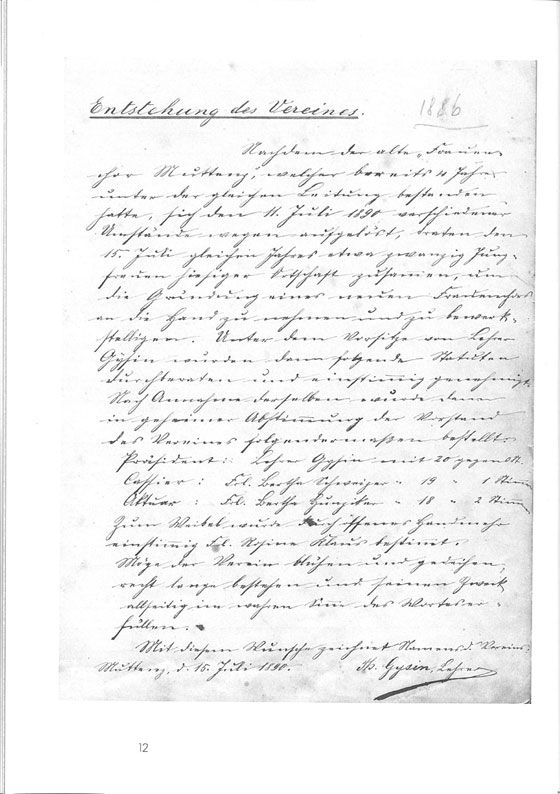 Entstehung des Vereines. 1886
Nachdem der alte „Frauen-
chor Muttenz, welcher bereits 4 Jahre
unter der gleichen Leitung bestanden
hatte, sich den 11. Juli 1890 verschiedener
Umstände wegen aufgelöst, traten den
15. Juli gleichen Jahres etwa zwanzig Jung-
frauen hiesiger Ortschaft zusamen, um
die Gründung eines neuen Frauenchors
an die Hand zu nehmen und zu bewerk-
stelligen. Unter dem Vorsitze von Lehrer
Gysin wurden dann folgende Statuten
durchberaten und einstimmig genehmigt.
Nach Annahme derselben wurde dann
in geheimer Abstimmung der Vorstand
des Vereines folgendermaßen bestellt:
Präsident: Lehrer Gysin mit 20 gegen 0 St.
Cassier: Frl. Bertha Schweizer " 19 " 1 Stimme
Aktuar: Frl. Bertha Hunziker " 18 " 2 Stimm
Zum Weibel wurde durch offenes Handmehr
einstimmig Frl. Rosine Klaus bestimt.
Möge der Verein blühen und gedeihen,
recht lange bestehen und seinen Zweck
allseitig im wahren Sine des Wortes er-
füllen.
Mit diesem Wunsche zeichnet Namens d. Vereins
Muttenz, d. 15. Juli 1890. Gysin, Lehrer
12